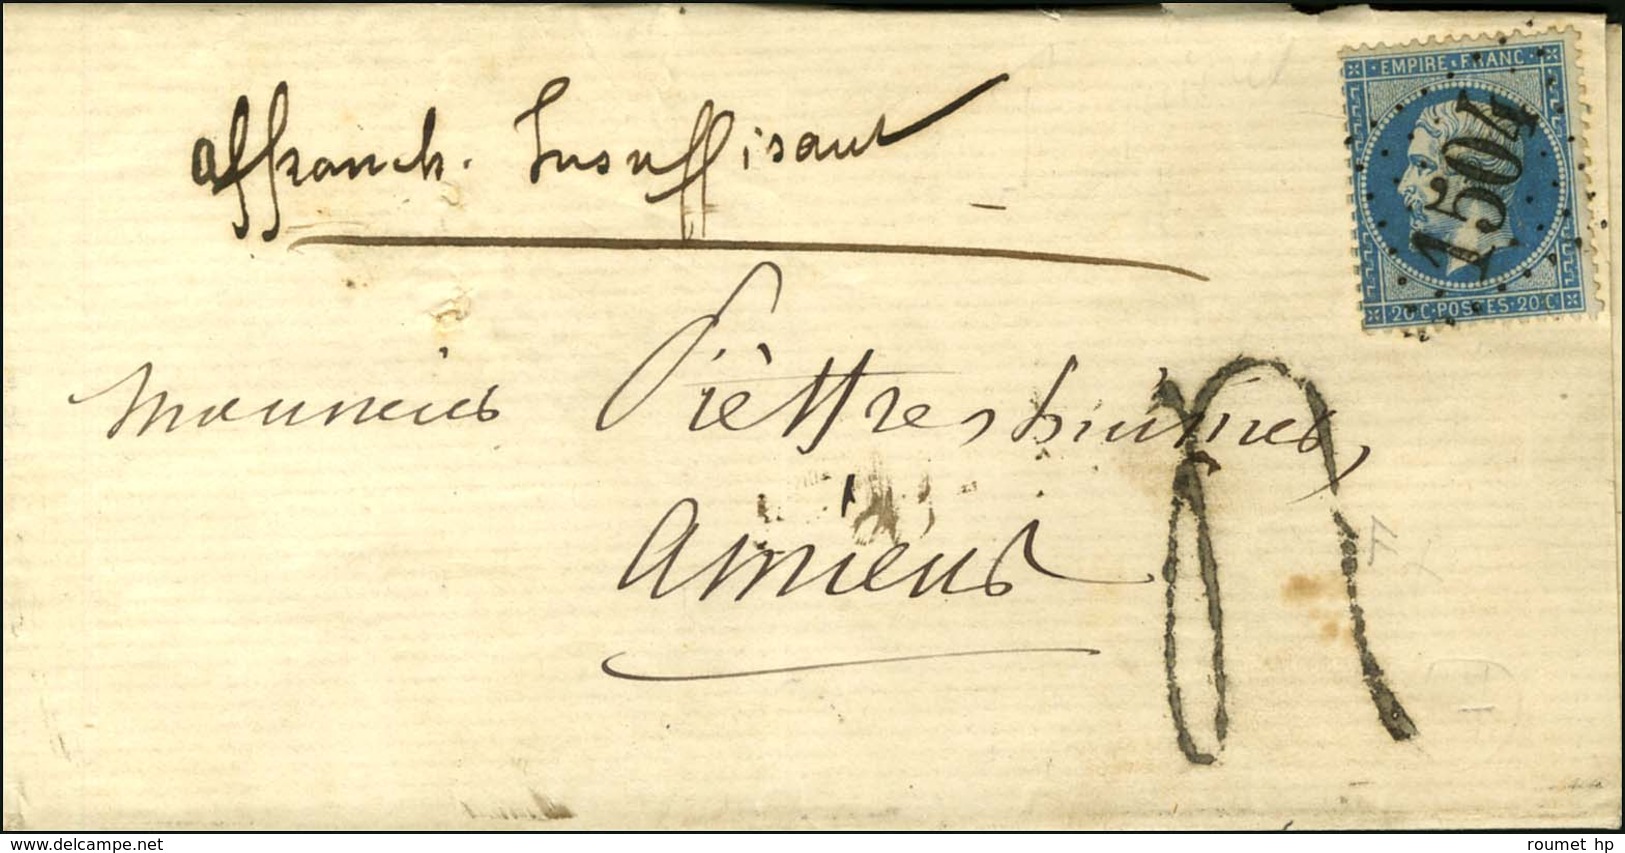 EMPIRE FRANC
1504
20 C POSTES 20 C
affranch. Insuffisant
Monsieur Piettre
Amiens
delcampe.net
roumet hp